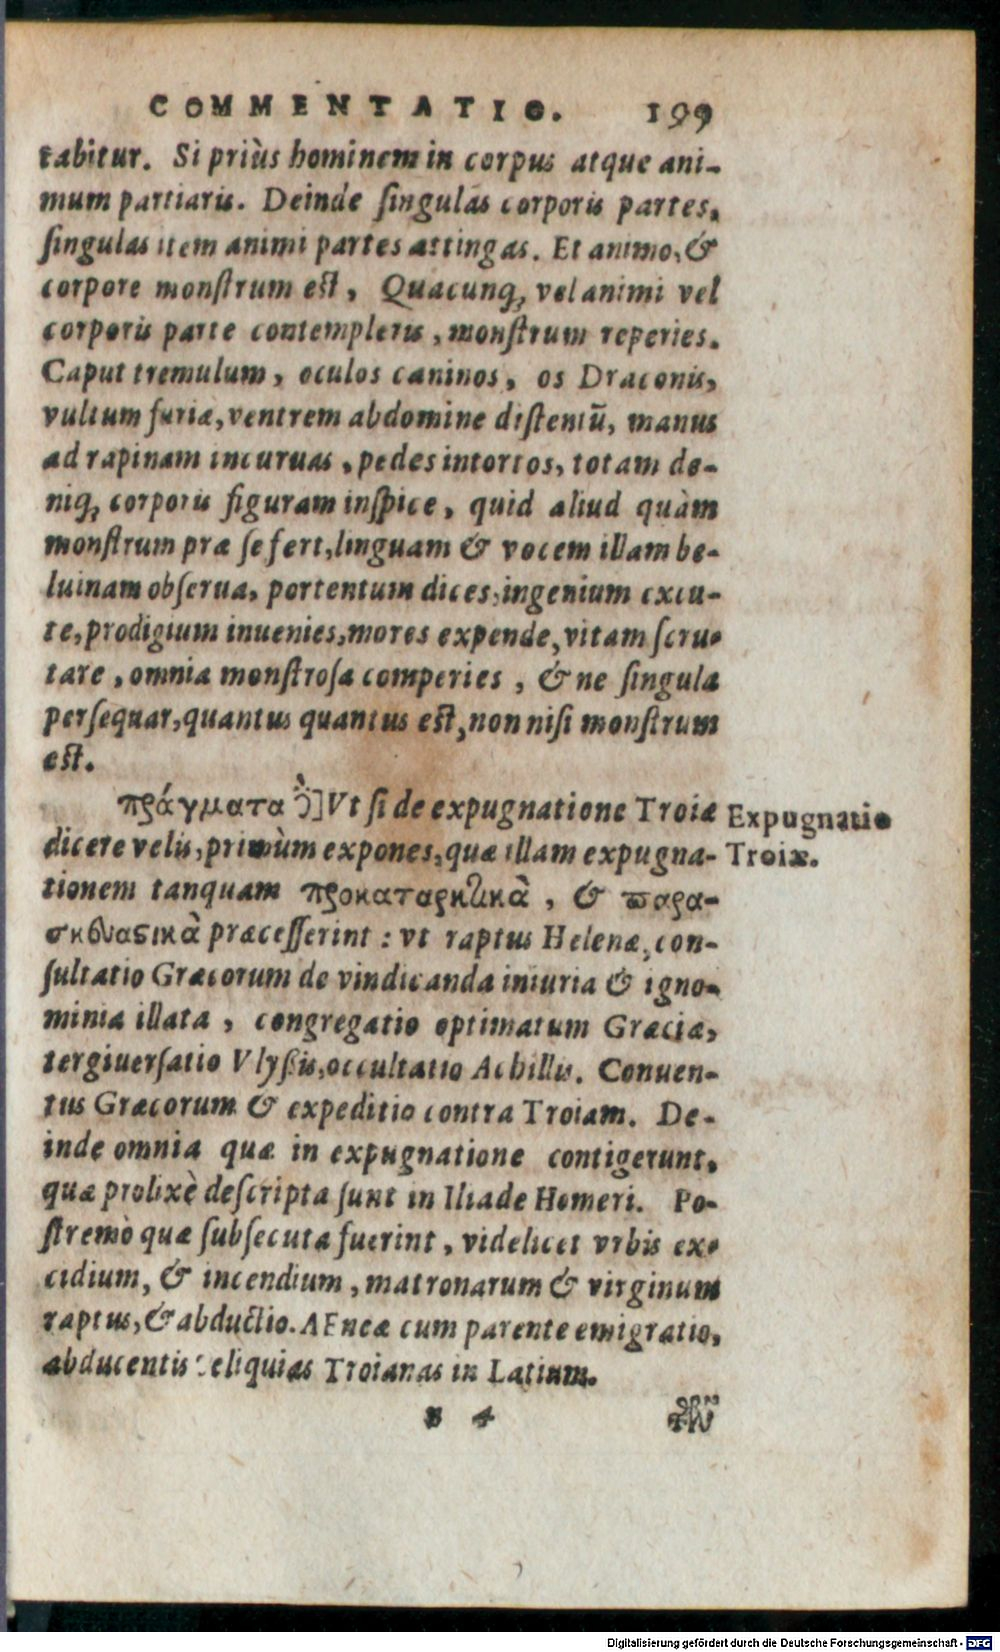 COMMENTATIO. 199
tabitur. Si priùs hominem in corpus atque ani-
mum partiaris. Deinde ſingulas corporis partes,
ſingulas item animi partes attingas. Et animo, &
corpore monſtrum eſt, Quacunq, vel animi vel
corporis parte contempleris, monſtrum reperies.
Caput tremulum, oculos caninos, os Draconis,
vultum furiæ, ventrem abdomine diſtentū, manus
ad rapinam incuruas, pedes intortos, totam de-
niq, corporis figuram inſpice, quid aliud quàm
monſtrum præ ſe fert, linguam & vocem illam be-
luinam obſerua, portentum dices, ingenium excu-
te, prodigium inuenies, mores expende, vitam ſcru-
tare, omnia monſtroſa comperies, & ne ſingula
perſequar, quantus quantus eſt, non niſi monſtrum
eſt.
πράγματα δὲ] Vt ſi de expugnatione Troiæ
Expugnatio
dicere velis, primùm expones, quæ illam expugna-
Troiæ.
tionem tanquam προκαταρκτικὰ, & παρα-
σκευαστικὰ præceſſerint: vt raptus Helenæ, con-
ſultatio Græcorum de vindicanda iniuria & igno-
minia illata, congregatio optimatum Græciæ,
tergiuerſatio Vlyßis, occultatio Achillis. Conuen-
tus Græcorum & expeditio contra Troiam. De-
inde omnia quæ in expugnatione contigerunt,
quæ prolixè deſcripta ſunt in Iliade Homeri. Po-
ſtremò quæ ſubſecuta fuerint, videlicet vrbis ex-
cidium, & incendium, matronarum & virginum
raptus, & abductio. AEneæ cum parente emigratio,
abducentis reliquias Troianas in Latium.
B 4
Digitalisierung gefördert durch die Deutsche Forschungsgemeinschaft - DFG